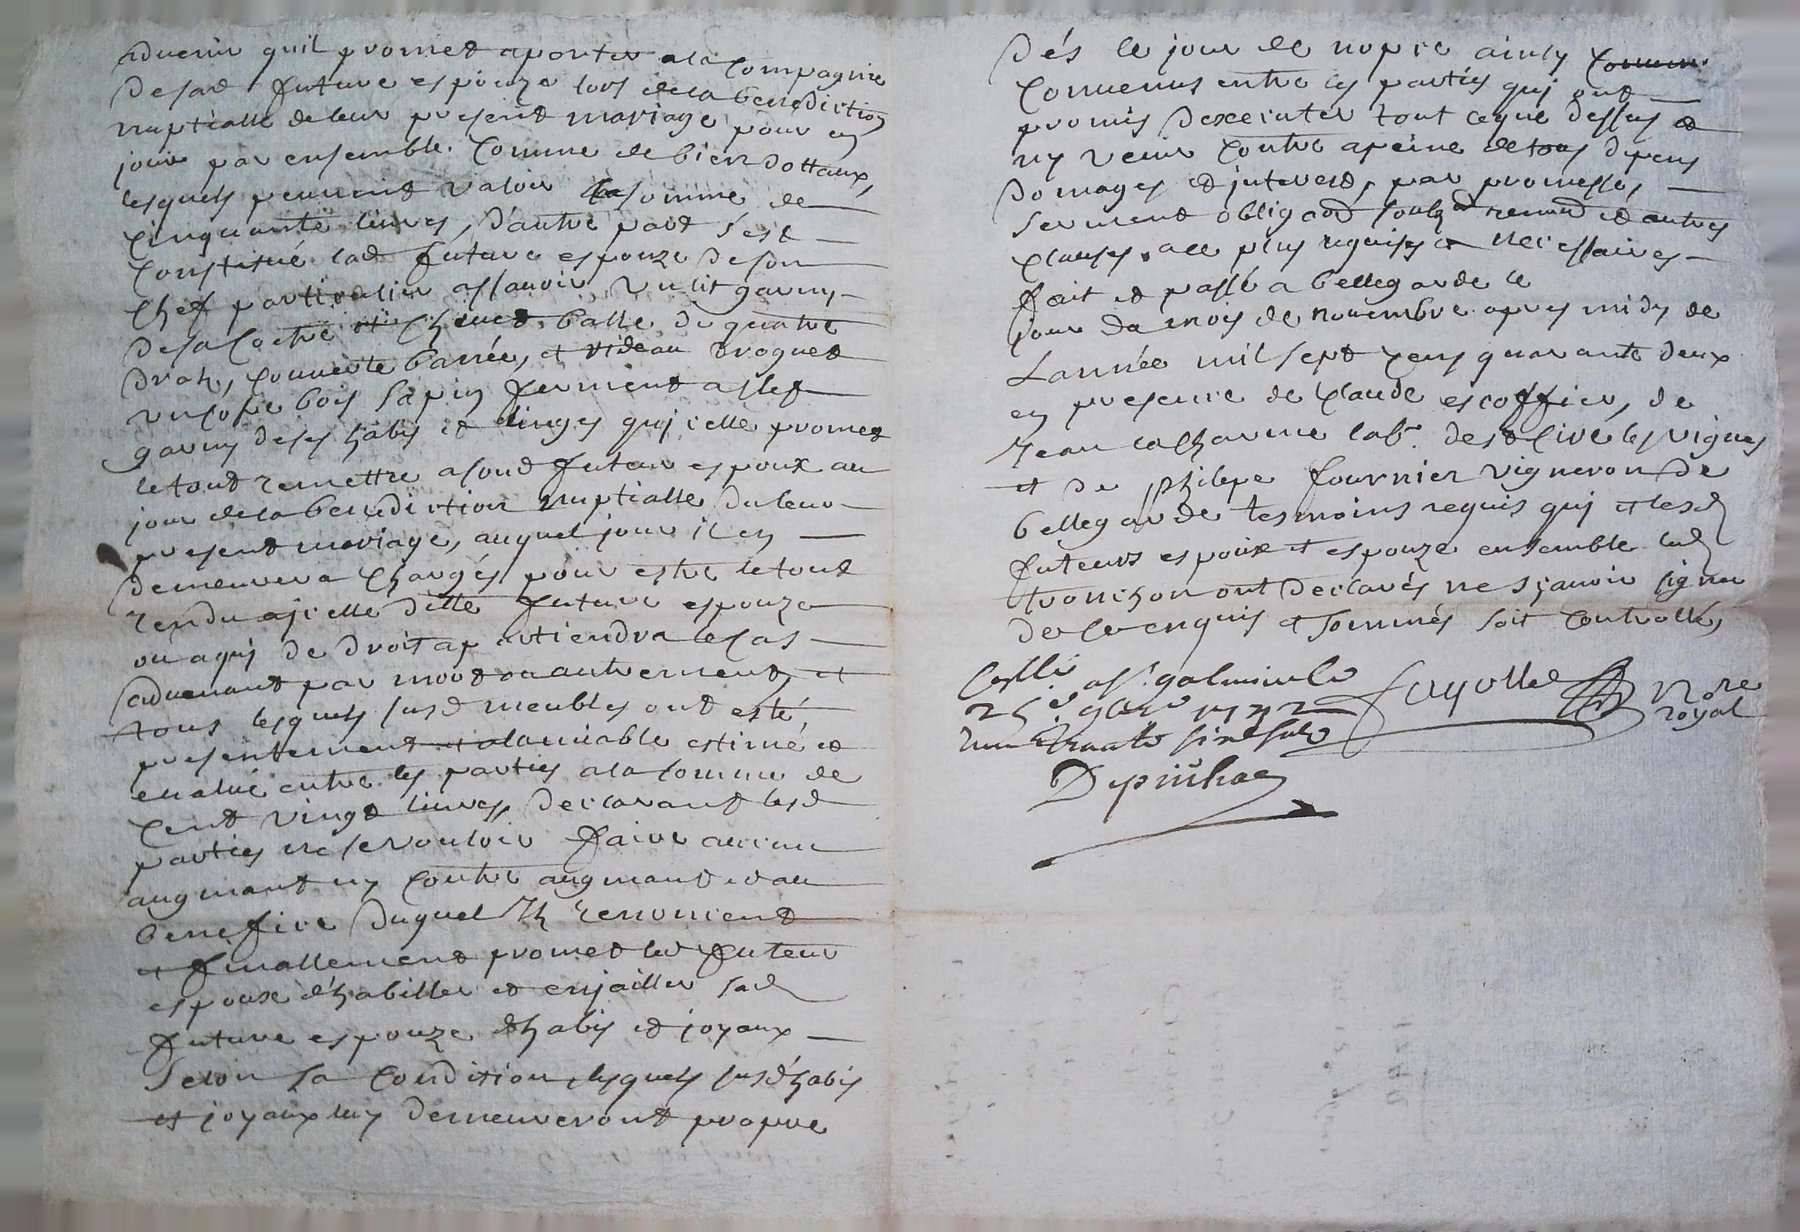 advenir quil promet aporter a la Compagnie
de sad future espouze lors de la benediction
nuptialle de leur present mariage pour en
jouir par ensemble. Comme de bien dottaux,
lesquels peuvent valoir la somme de
Cinquante livres, d'autre part sest
Constitué lad future espouze de son
Chef particulier assavoir, un lit garny
de sa Coetre et Chevet balle de quatre
drats, couverte barrée, et rideau droguet
un cofre bois sapin ferment a clef
garny de ses habis et linges quj celle promet
le tout remettre a sond futeur espoux au
jour de la benediction nuptialle du leur
present mariage, auquel jour il en
demeurera Chargés pour estre le tout
rendu a jcelle ditte future espouze
ou a quj de droit apartiendra le Cas
advenant par mort ou autrement, et
tous lesquels susd meubles ont esté,
presentement a lamiable estimé et
evalué entre les parties a la somme de
Cent vingt livres, declarant lesd
parties ne se vouloir faire aucun
augmant ny Contre augmant et au
benefice duquel Ils renoncent
et finallement promet led futeur
espoux d'habiller et enjailler sad
future espouze dhabis et joyaux
selon sa Condition, lesquels susd habis
et joyaux luy demeureront propre
dés le jour de nopce ainsy
Convenus entre les parties quj ont
promis dexecuter tout ce que dessus et
ny venir Contre a peine de tous depens
domages et jnterest, par promesses,
serment obligaon soubzon renond et autres
Clauses, a ce plus requises et necessaires
fait et passé a bellegarde le
jour du mois de novembre apres midy de
Lannée mil sept Cens quarante deux
en presence de Claude escoffier, de
Jean lacharme labr. de st Ciré les vignes
et de philipe fournier vigneron de
bellegarde tesmoins requis quj et lesd
futeurs espoux et espouze ensemble lad
tronchon ont declarés ne sçavoir signer
de ce enquis et sommés soit Controllés
Collé a st galmier le
25e 9bre 1742 Fayolle Nore
royal